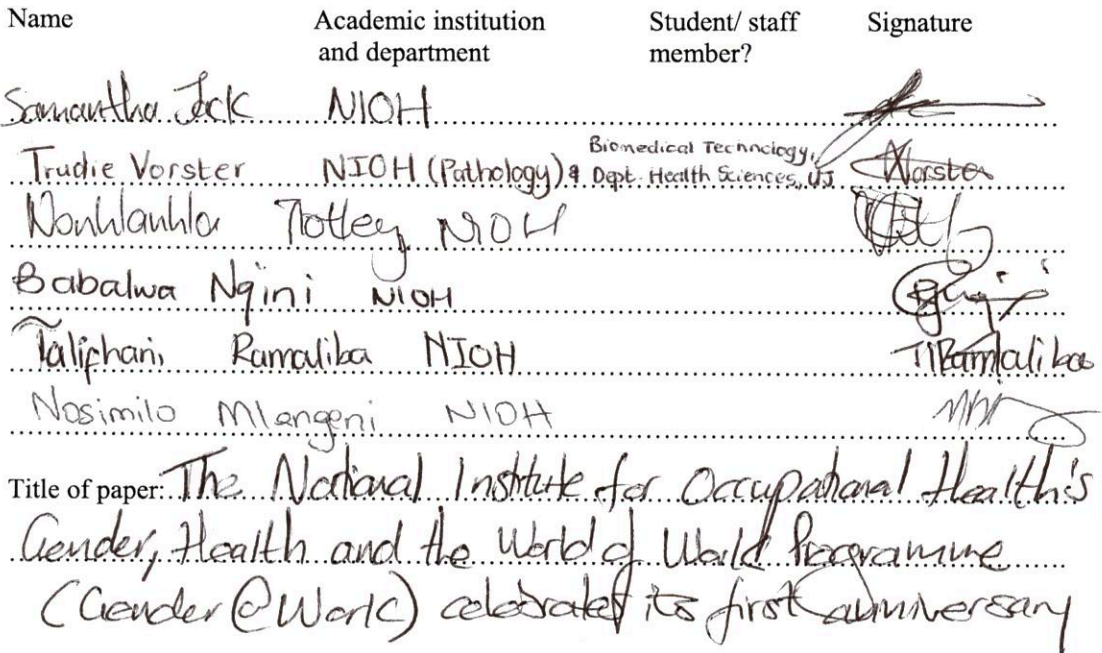 Name Academic institution and department Student/ staff member? Signature
Samantha Jack NIOH
Trudie Vorster NIOH (Pathology) & Biomedical Technology, Dept. Health Sciences, UJ Vorster
Nonhlanhla Tlotleng NIOH
Babalwa Nqini NIOH
Taliphani Ramaliba NIOH TIRamaliba
Nosimilo Mlangeni NIOH
Title of paper: The National Institute for Occupational Health's
Gender, Health and the World of World Programme
(Gender@Work) celebrates its first anniversary